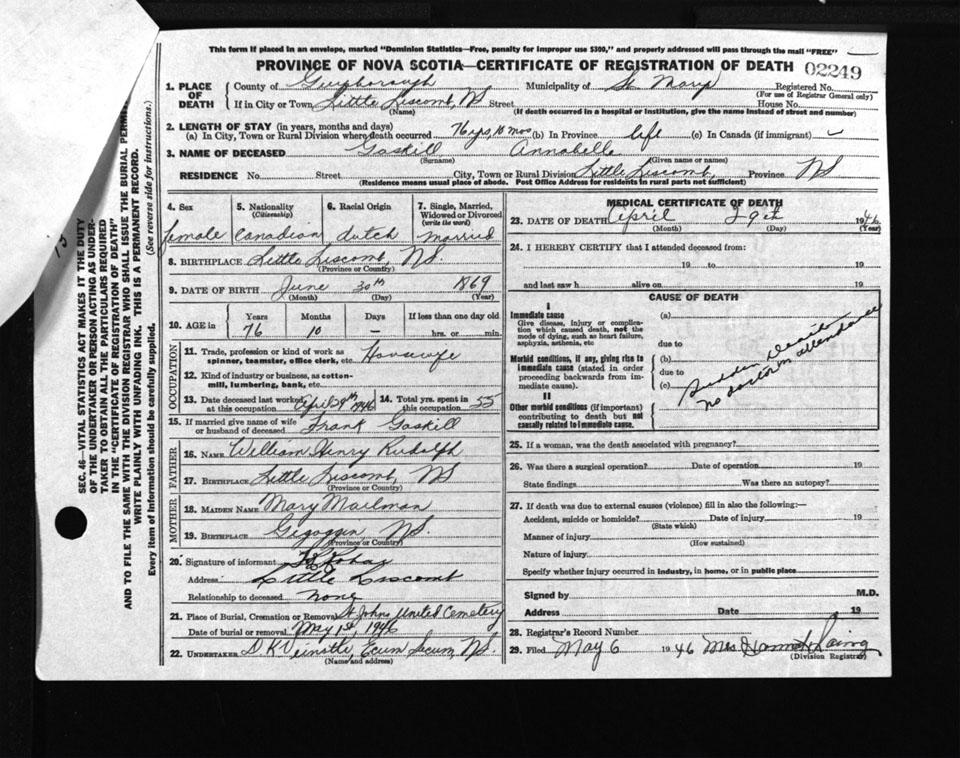 This form if placed in an envelope, marked "Dominion Statistics—Free, penalty for improper use $300," and properly addressed will pass through the mail "FREE"
PROVINCE OF NOVA SCOTIA—CERTIFICATE OF REGISTRATION OF DEATH 02249
1. PLACE OF DEATH
County of Guysborough Municipality of St Marys Registered No.
(For use of Registrar General only)
If in City or Town Little Liscomb, NS Street House No.
(Name) (If death occurred in a hospital or institution, give the name instead of street and number)
2. LENGTH OF STAY (in years, months and days)
(a) In City, Town or Rural Division where death occurred 76 yrs, 10 mos (b) In Province life (c) In Canada (if immigrant) –
3. NAME OF DECEASED Gaskill Annabella
(Surname) (Given name or names)
RESIDENCE No. Street City, Town or Rural Division Little Liscomb, Province NS
(Residence means usual place of abode. Post Office Address for residents in rural parts not sufficient)
4. Sex 5. Nationality (Citizenship) 6. Racial Origin 7. Single, Married, Widowed or Divorced (write the word)
female Canadian dutch married
8. BIRTHPLACE Little Liscomb, NS.
(Province or Country)
9. DATE OF BIRTH June 30th 1869
(Month) (Day) (Year)
10. AGE in Years Months Days If less than one day old
76 10 – hrs. or min.
OCCUPATION
11. Trade, profession or kind of work as spinner, teamster, office clerk, etc. Housewife
12. Kind of industry or business, as cotton-mill, lumbering, bank, etc.
13. Date deceased last worked at this occupation April 29th 1946 14. Total yrs. spent in this occupation 55
15. If married give name of wife or husband of deceased Frank Gaskill
FATHER
16. NAME William Henry Rudolph
17. BIRTHPLACE Little Liscomb, NS
(Province or Country)
MOTHER
18. MAIDEN NAME Mary Mailman
19. BIRTHPLACE Gegoggin, NS.
(Province or Country)
20. Signature of informant
Address Little Liscomb
Relationship to deceased none
21. Place of Burial, Cremation or Removal St Johns United Cemetery
Date of burial or removal May 1st, 1946
22. UNDERTAKER Ecum Secum, NS.
(Name and address)
MEDICAL CERTIFICATE OF DEATH
23. DATE OF DEATH April 29th 1946
(Month) (Day) (Year)
24. I HEREBY CERTIFY that I attended deceased from:
19 to 19
and last saw h alive on 19
CAUSE OF DEATH
I
Immediate cause (a)
Give disease, injury or complication which caused death, not the mode of dying, such as heart failure, asphyxia, asthenia, etc
due to
Morbid conditions, if any, giving rise to immediate cause (stated in order proceeding backwards from immediate cause). (b)
due to
(c)
II
Other morbid conditions (if important) contributing to death but not causally related to immediate cause.
Sudden Death
no doctor in attendance
25. If a woman, was the death associated with pregnancy?
26. Was there a surgical operation? Date of operation 19
State findings Was there an autopsy?
27. If death was due to external causes (violence) fill in also the following:—
Accident, suicide or homicide? Date of injury 19
(State which)
Manner of injury
(How sustained)
Nature of injury
Specify whether injury occurred in industry, in home, or in public place
Signed by M.D.
Address Date 19
28. Registrar's Record Number
29. Filed May 6 1946 Mrs Laing
(Division Registrar)
SEC. 46—VITAL STATISTICS ACT MAKES IT THE DUTY
OF THE UNDERTAKER OR PERSON ACTING AS UNDER-
TAKER TO OBTAIN ALL THE PARTICULARS REQUIRED
IN THE "CERTIFICATE OF REGISTRATION OF DEATH"
AND TO FILE THE SAME WITH THE DIVISION REGISTRAR WHO SHALL ISSUE THE BURIAL PERMIT
WRITE PLAINLY WITH UNFADING INK. THIS IS A PERMANENT RECORD.
Every item of information should be carefully supplied. (See reverse side for instructions.)